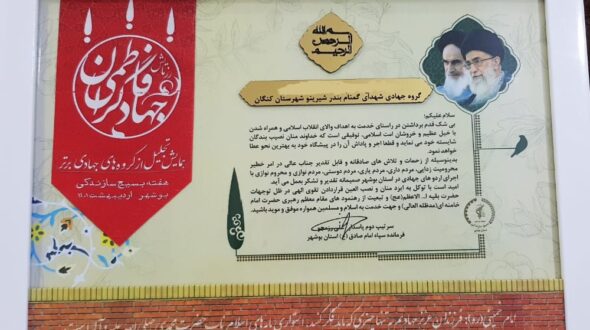 بسم الله الرحمن الرحیم
جهادگران فاطمی
همایش تجلیل از گروه های جهادی برتر
هفته بسیج سازندگی
بوشهر اردیبهشت ۱۴۰۱
گروه جهادی شهدای گمنام بندر شیرینو شهرستان کنگان
سلام علیکم؛
بی شک قدم برداشتن در راستای خدمت به اهداف والای انقلاب اسلامی و همراه شدن
با خیل عظیم و خروشان امت اسلامی، توفیقی است که خداوند منان نصیب بندگان
شایسته خود می نماید و قطعا اجر و پاداش آن را در پیشگاه خود به بهترین نحو عطا
خواهد نمود.
بدینوسیله از زحمات و تلاش های صادقانه و قابل تقدیر جناب عالی در امر خطیر
محرومیت زدایی، مردم داری، مردم یاری، مردم دوستی، مردم نوازی و محروم نوازی با
اجرای اردوهای جهادی در استان بوشهر صمیمانه تقدیر و تشکر بعمل می آید.
امید است با توکل به ایزد منان و نصب العین قراردادن تقوی الهی در ظل توجهات
حضرت بقیه ا...الاعظم(عج) و تبعیت از رهنمود های مقام معظم رهبری حضرت امام
خامنه ای(مدظله العالی) و جهت خدمت به اسلام و مسلمین همواره موفق و موید باشید.
سرتیپ دوم پاسدار
فرمانده سپاه امام صادق (ع) استان بوشهر